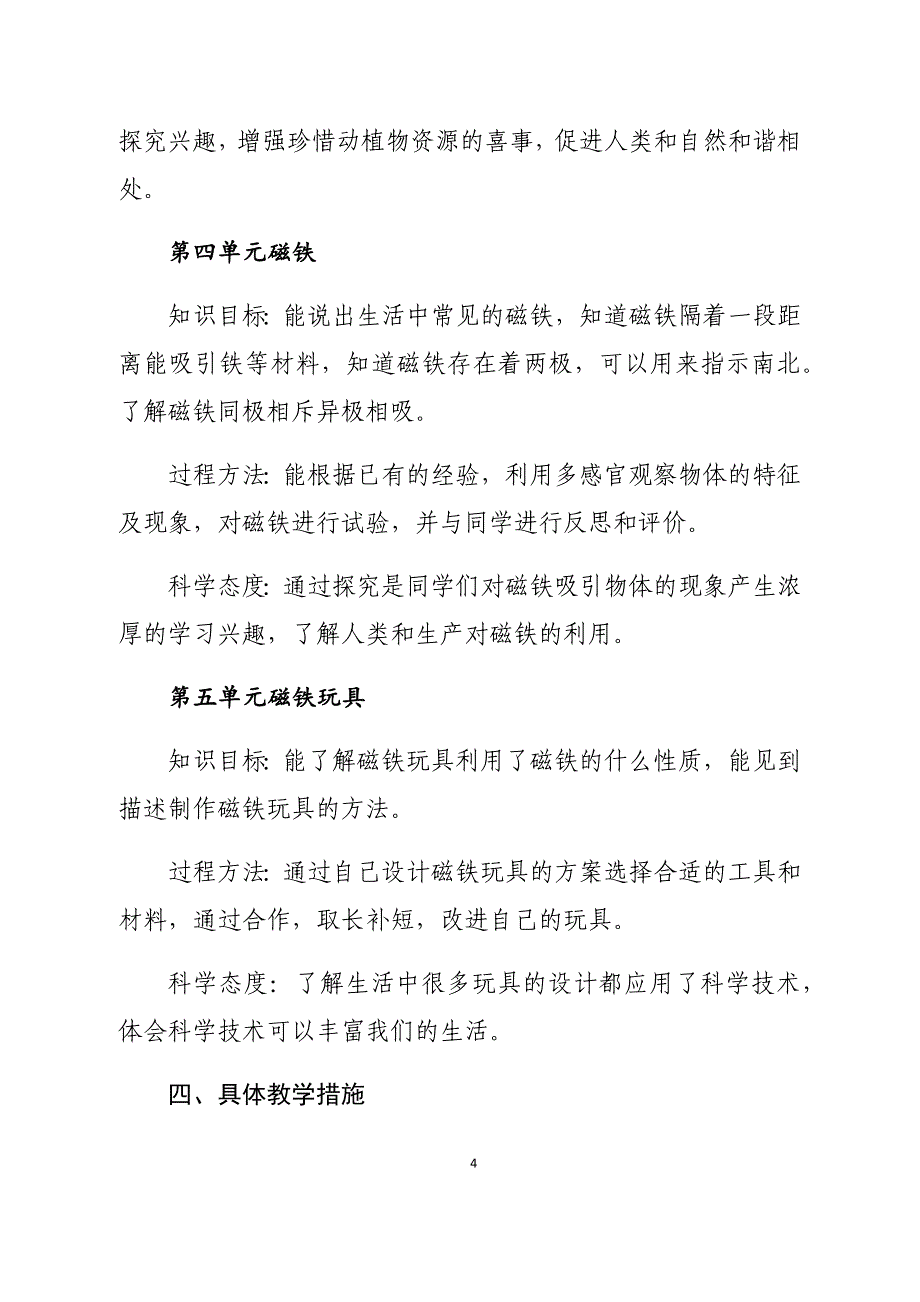 探究兴趣，增强珍惜动植物资源的喜事，促进人类和自然和谐相
处。
第四单元磁铁
知识目标：能说出生活中常见的磁铁，知道磁铁隔着一段距
离能吸引铁等材料，知道磁铁存在着两极，可以用来指示南北。
了解磁铁同极相斥异极相吸。
过程方法：能根据已有的经验，利用多感官观察物体的特征
及现象，对磁铁进行试验，并与同学进行反思和评价。
科学态度：通过探究是同学们对磁铁吸引物体的现象产生浓
厚的学习兴趣，了解人类和生产对磁铁的利用。
第五单元磁铁玩具
知识目标：能了解磁铁玩具利用了磁铁的什么性质，能见到
描述制作磁铁玩具的方法。
过程方法：通过自己设计磁铁玩具的方案选择合适的工具和
材料，通过合作，取长补短，改进自己的玩具。
科学态度：了解生活中很多玩具的设计都应用了科学技术，
体会科学技术可以丰富我们的生活。
四、具体教学措施
4